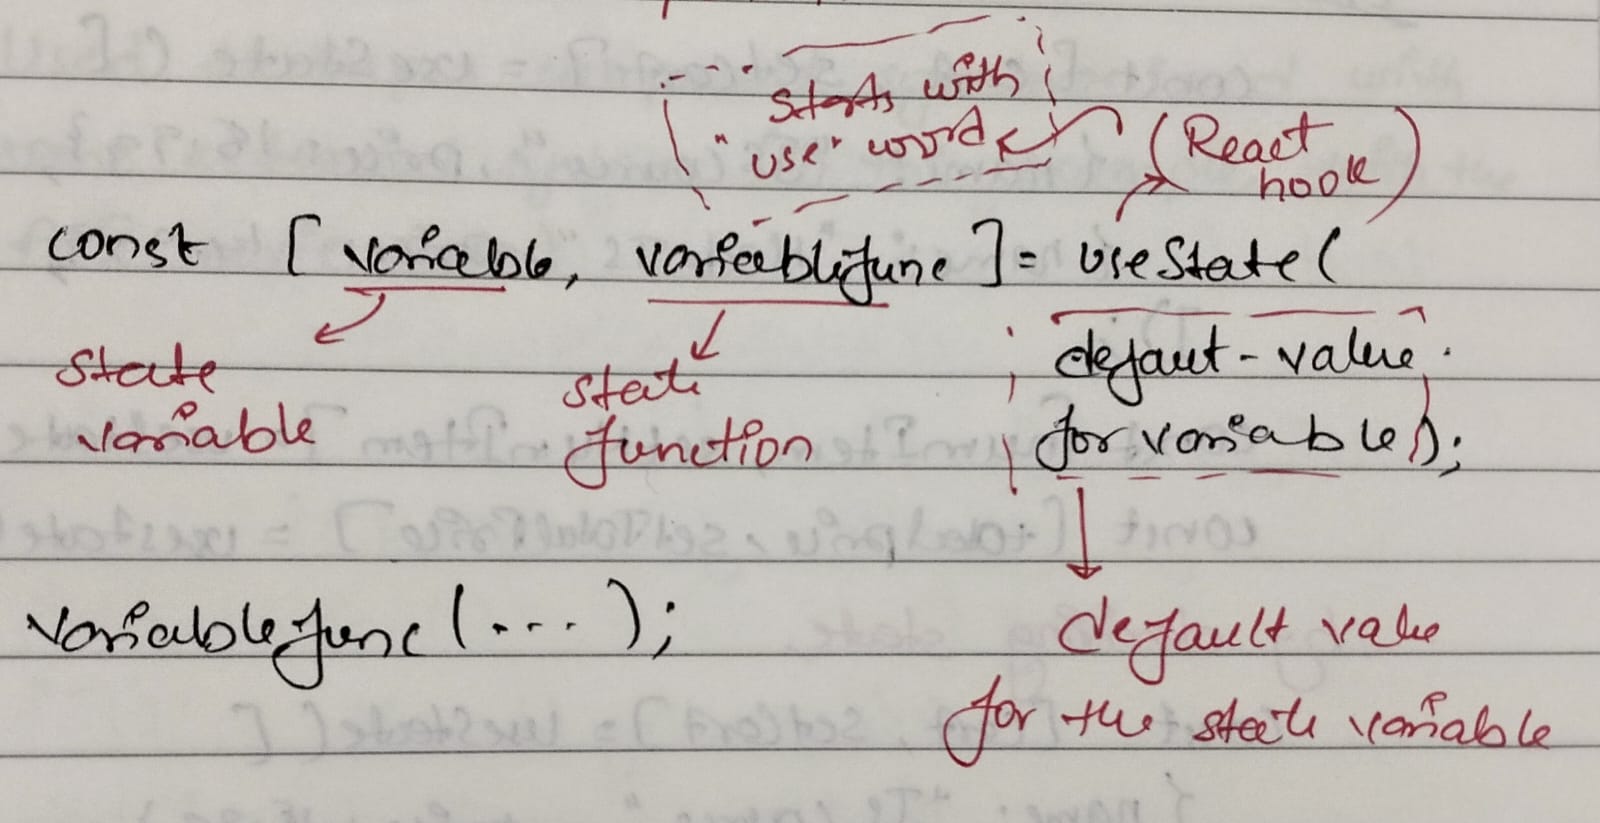 starts with
"use" word
(React
hook)
const [variable, variablefunc] = useState(
defaut-value
for variable);
state
variable
state
function
variablefunc(...);
default value
for the state variable